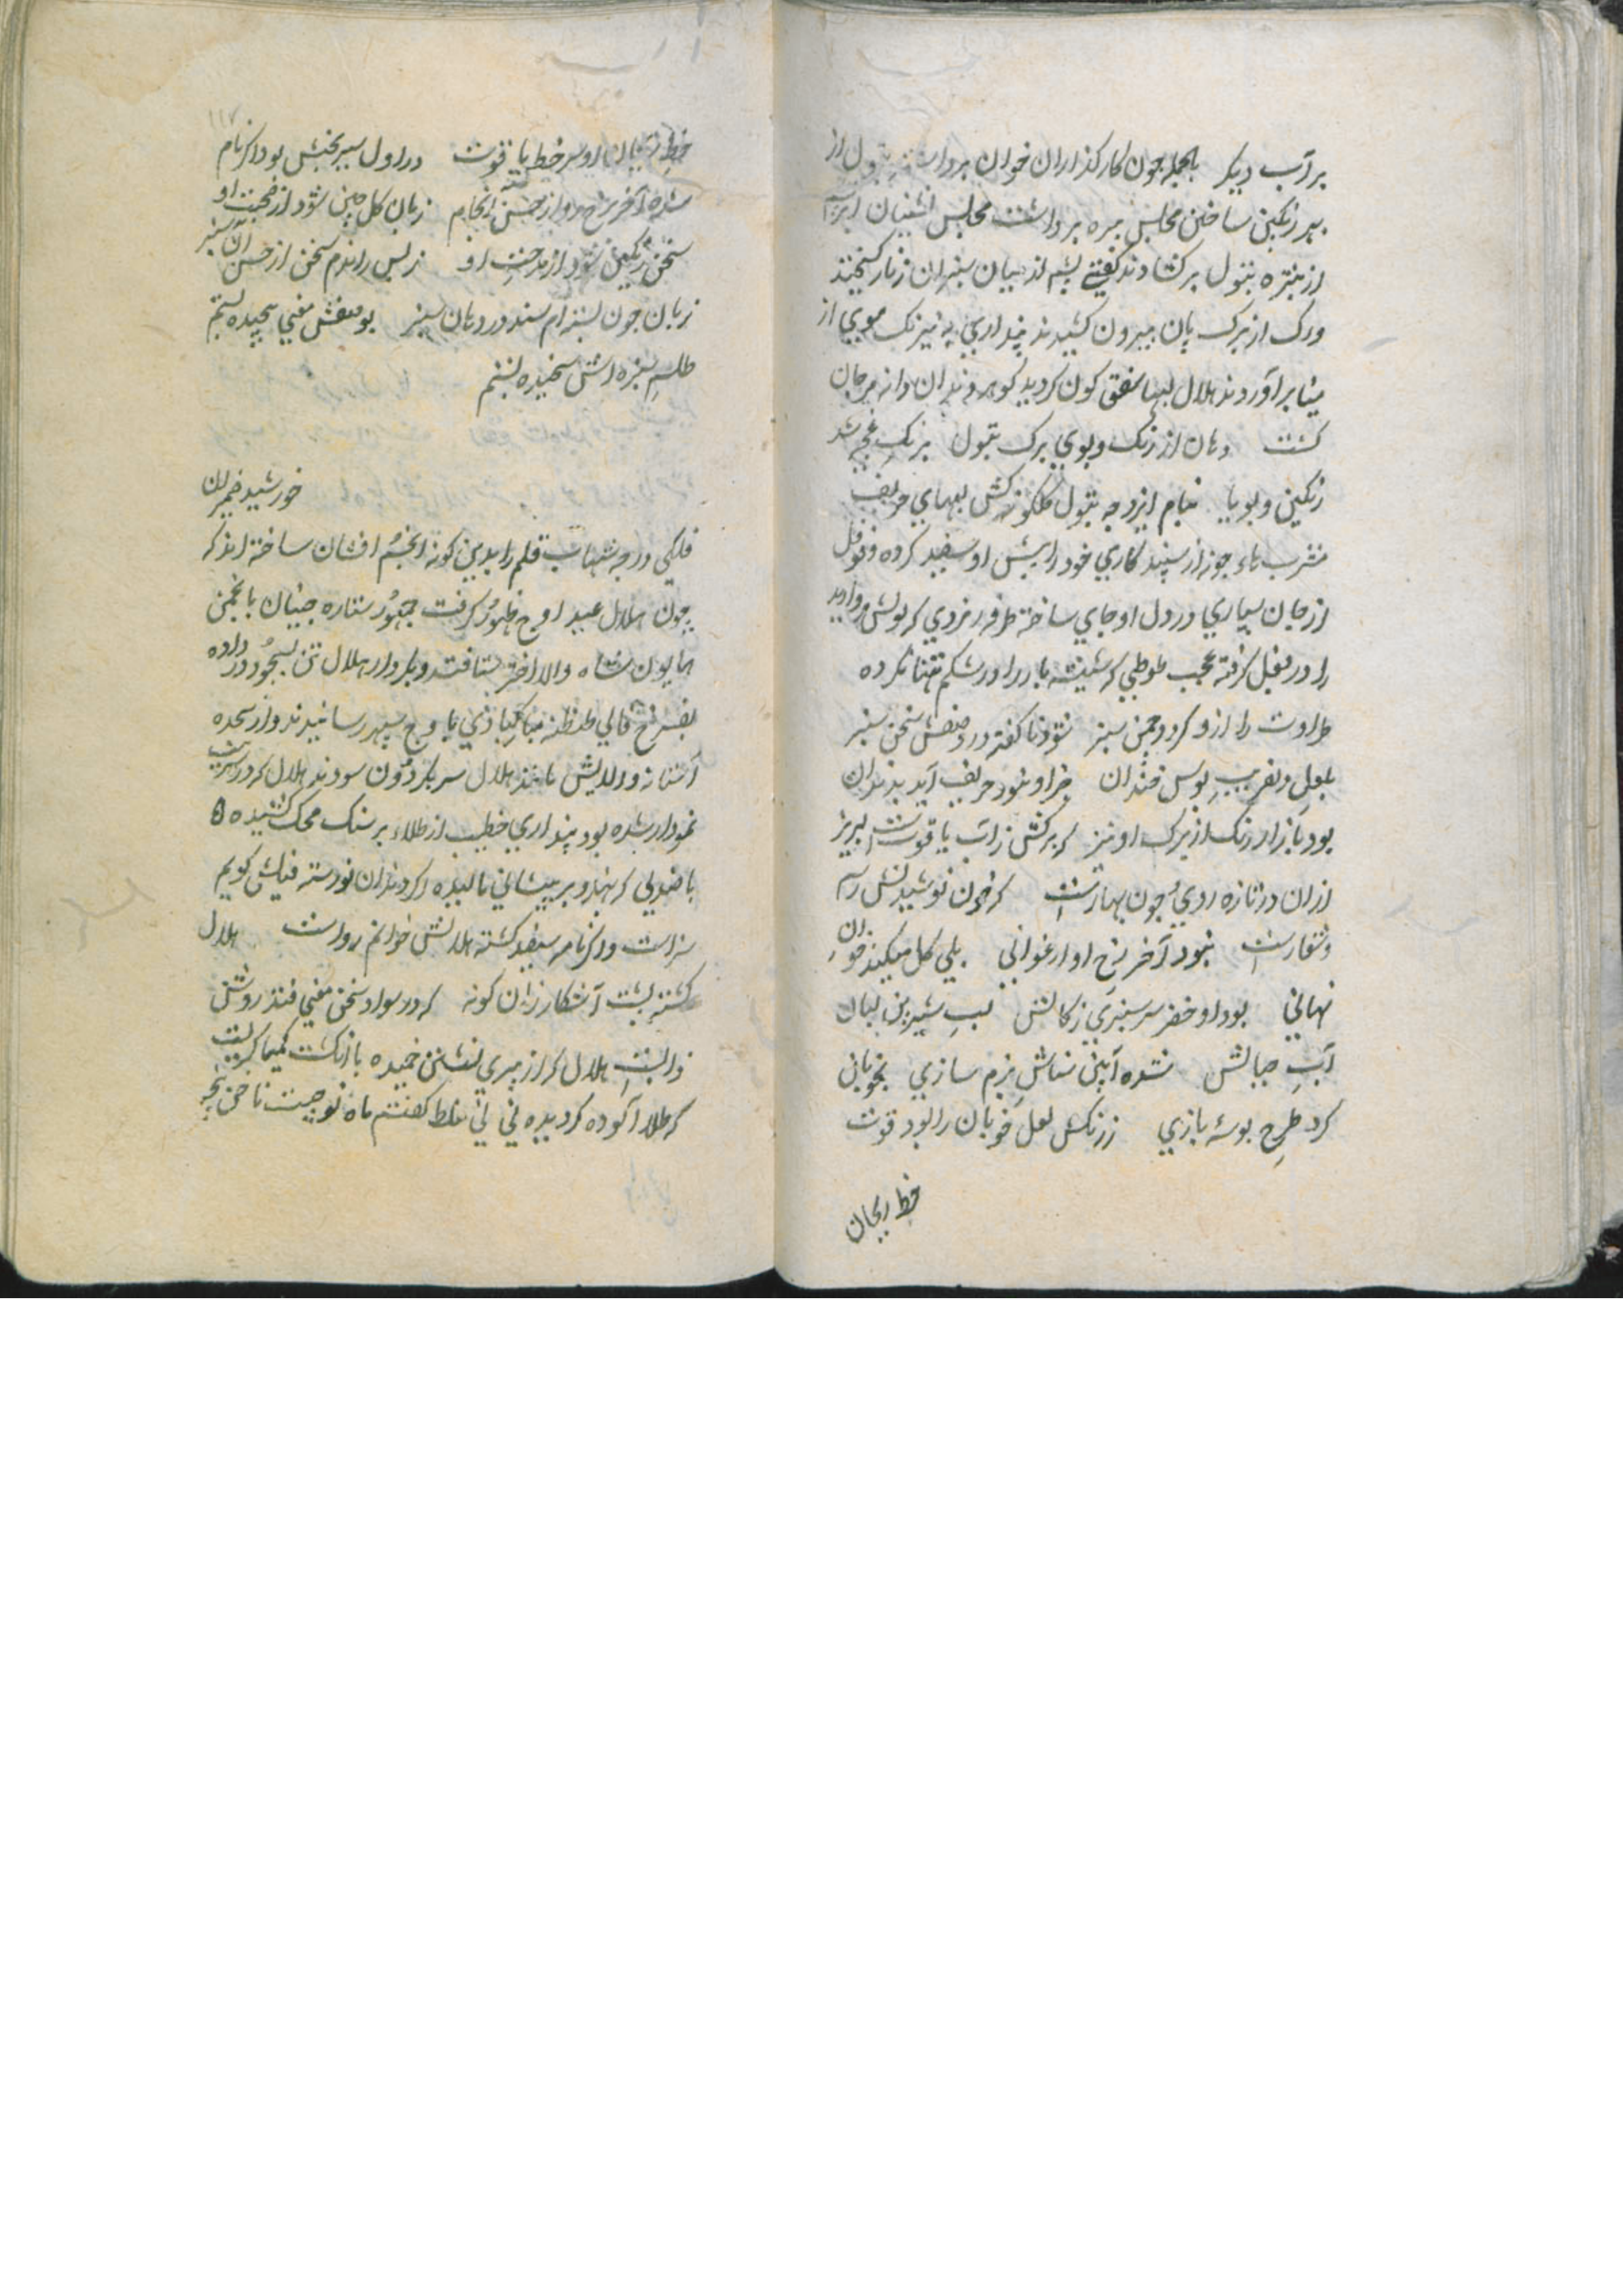 بر آب دیکر بالجمله چون کارکذاران خوان برداشتند تنبول از
بهر رنکین ساختن مجلس بیره برداشت مجلس نشینان
از بیره تنبول برکشادند کفتی پشم از میان سبزان زنار کسیختند
ورک از برک پان بیرون کشیدند پنداری به نیرنک موی از
مینا برآوردند هلال لبها شفق کون کردید کوهر دندان دانه مرجان
کشت دهان از رنک و بوی برک تنبول برنک غنچه شد
رنکین و بویا بنام ایزد چه تنبول کلکونه کش لبهای حریف
مشرب ماء جوز از سپند کاری خود را پیش او سفید کرده و فوفل
از جان سپاری در دل او جای ساخته طرفه زمردی که پولش مروارید
را در بغل کرفته عجب طوطی که شیشه بار را در شکم تهنا کرده
طراوت را ازو کردد چمن سبز شود ناکفته در وصفش سخن سبز
بلعل دلفریب بوس خندان چرا و نمود حریف آید بدندان
بود بازار رنک از برک او تیز که برکش ز آب یاقوتست لبریز
ازان در تازه روی چون بهارست که خون نوشیدنش رسم
و شعارست نبود آخر رخ او ارغوانی بلی کل میکند خون
نهانی بود او خضر سرسبزی زکالش لب شیرین لبان
آب حیالش شده آیین شناس بزم سازی بخوبان
کرد طرح بوسه بازی ز رنکش لعل خوبان را بود قوت
خط ریحان
۱۱۷
خط ریحان او سرخط یاقوت در اول سبربختش بود اکر نام
شده آخر سرخ رو از حسن انجام زبان کل چین شود از صحبت او
سخن رنکین شود از مدحت او ز بس راندم سخن از حسن آن سبز
زبان چون پسته ام شد در دهان سبز بوصفش معنی پیچیده بستم
طلسم سبزه اش سنجیده بستم
خورشید ضمیران
فلکی درجه شهاب قلم را بدین کونه انجم افشان ساخته اند که
چون هلال عید اوج ظهور کرفت جمهور ستاره جبینان با انجمن
همایون شاه والا اختر بشتافتند و بکردار هلال تن بسجود در داده
بفرخ فالی طنطنه مبارکبادی باوج سپهر رسانیدند و از سجده
آستانه والایش مانند هلال سر بکردون سودند هلال که در
نمودار شده بود پنداری خطیب از طلاء بر سنک محک کشیده
یا صندلی که هندو بر پیشانی مالیده اکر دندان نورسته فیلش کویم
سزاست و اکر نامه سفید کشته هلالش خوانم رواست هلال
کشته پشت آشکار زان کونه که در سواد سخن معنی فتد روشن
زالیست هلال که از پیری پشتش خمیده یا انکشت کیمیاکریست
که طلا آلوده کردیده نی نی غلط کفتم ماه نو چیست ناخن